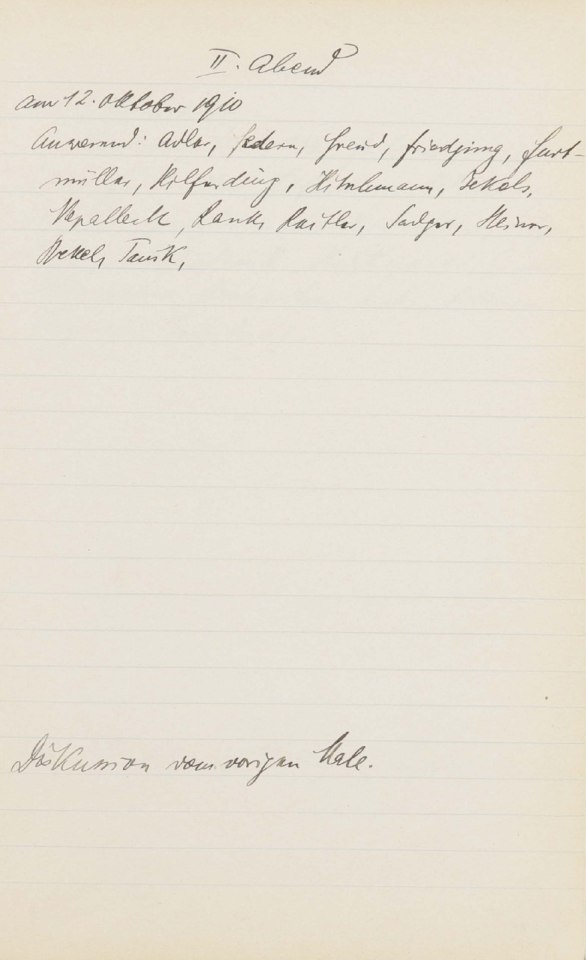 II. Abend
am 12. Oktober 1910
Anwesend: Adler, Federn, Freud, Friedjung, Furt-
müller, Hilferding, Hitschmann, Jekels,
Oppolleck, Rank, Reitler, Sadger, Steiner,
Stekel, Tausk,
Diskussion vom vorigen Male.